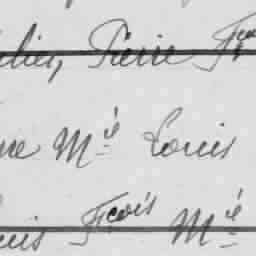 lier, Pierre Fçois
me Mie Louis
uis Fçois Mie